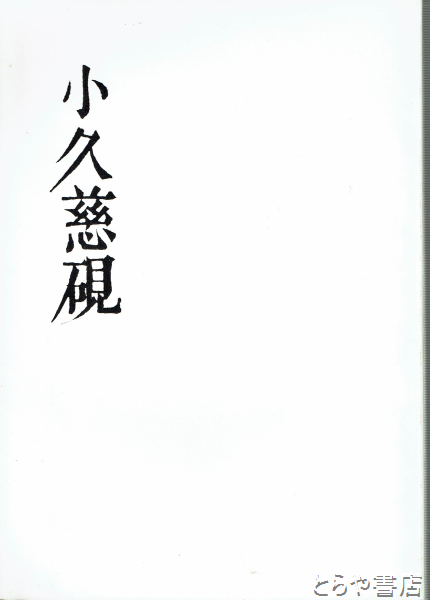 小久慈硯
とらや書店